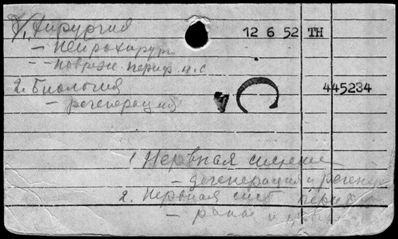 1. Хирургия
12 6 52 TH
- нейрохирург
- повреж. периф. н.с
2. Биология
445234
- регенерация
1. Нервная система
- дегенерация и регенер
2. Нервная сист периф
- рана и